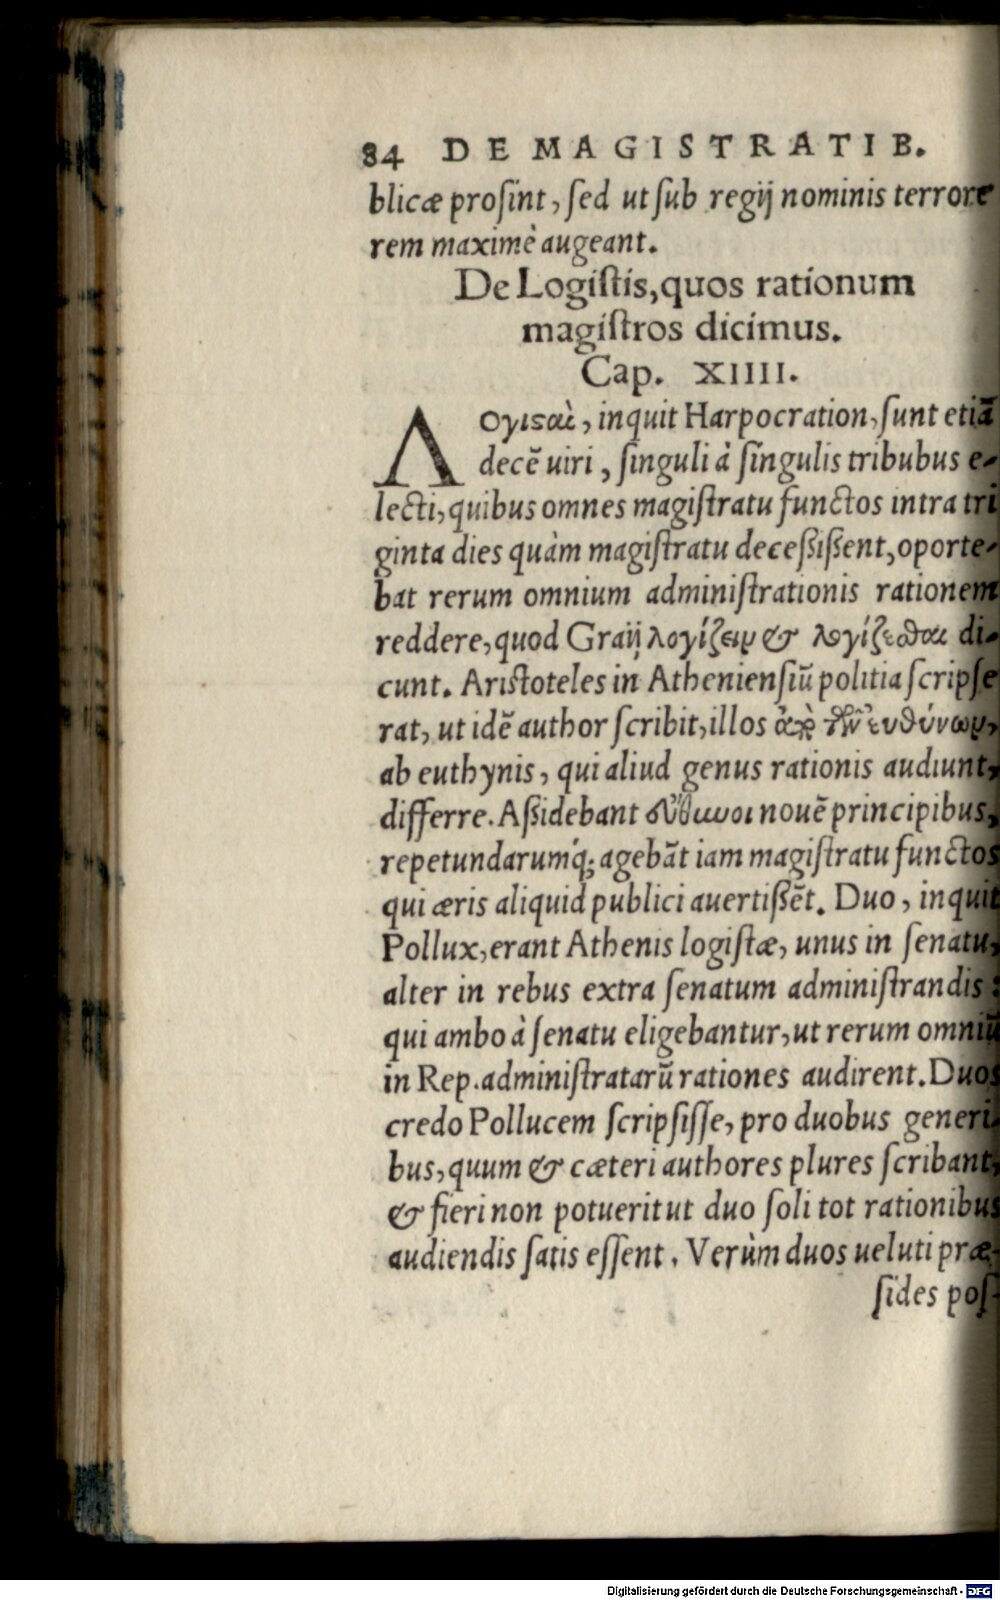 84 DE MAGISTRATIB.
blicæ prosint, sed ut sub regij nominis terrore
rem maximè augeant.
De Logistis, quos rationum
magistros dicimus.
Cap. XIIII.
Λογιϛαὶ, inquit Harpocration, sunt etiā
decē uiri, singuli à singulis tribubus e-
lecti, quibus omnes magistratu functos intra tri
ginta dies quàm magistratu decessissent, oporte-
bat rerum omnium administrationis rationem
reddere, quod Græij λογίζειν & λογίζεσθαι di-
cunt. Aristoteles in Atheniensiū politia scripse
rat, ut idē author scribit, illos τῶν ευθύνων,
ab euthynis, qui aliud genus rationis audiunt,
differre. Assidebant εὔθωυοι nouē principibus,
repetundarumq́; agebāt iam magistratu functos
qui æris aliquid publici auertissēt. Duo, inquit
Pollux, erant Athenis logistæ, unus in senatu,
alter in rebus extra senatum administrandis:
qui ambo à senatu eligebantur, ut rerum omniū
in Rep. administratarū rationes audirent. Duos
credo Pollucem scripsisse, pro duobus generi-
bus, quum & cæteri authores plures scribant,
& fieri non potuerit ut duo soli tot rationibus
audiendis satis essent. Verùm duos ueluti præ-
sides pos-
Digitalisierung gefördert durch die Deutsche Forschungsgemeinschaft - DFG